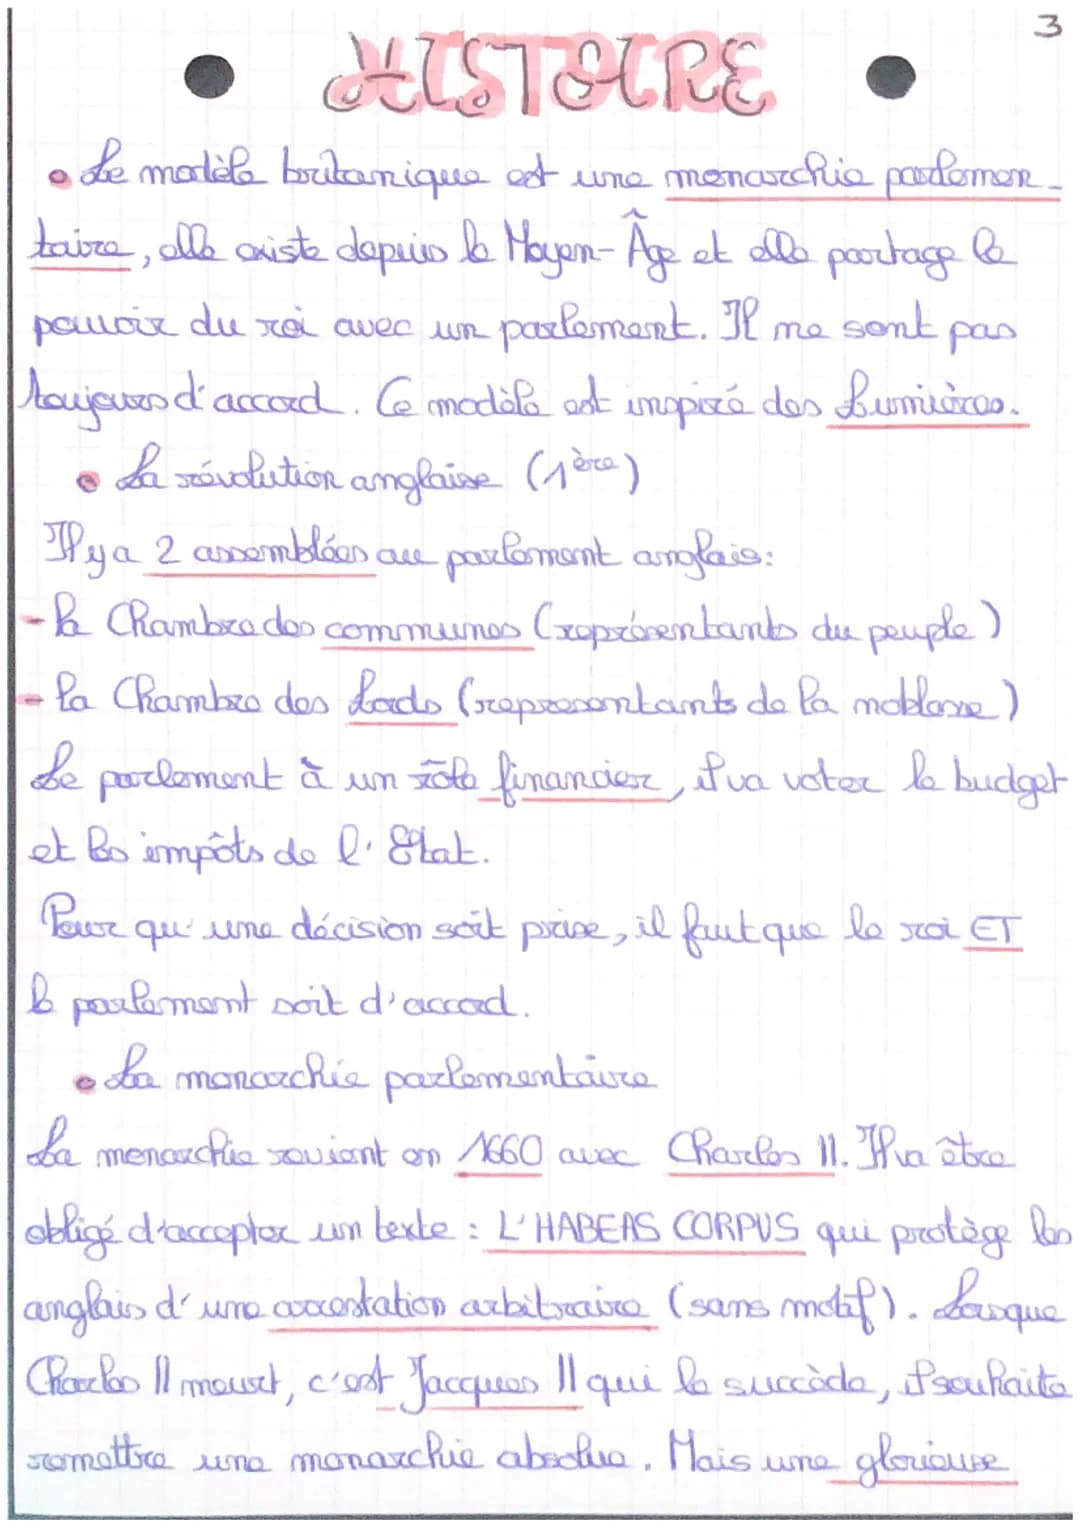 3
HISTOIRE
• Le modèle britanique est une monarchie parlemen-
taire, elle existe depuis le Moyen-Âge et elle partage le
pouvoir du roi avec un parlement. Il ne sont pas
toujours d'accord. Ce modèle est inspiré des Lumières.
• La révolution anglaise (1ère)
Il y a 2 assemblées au parlement anglais:
- la Chambre des communes (représentants du peuple)
- la Chambre des Lords (representants de la noblesse)
Le parlement à un rôle financier, il va voter le budget
et les impôts de l'Etat.
Pour qu'une décision soit prise, il faut que le roi ET
le parlement soit d'accord.
• La monarchie parlementaire
La monarchie revient en 1660 avec Charles II. Il va être
obligé d'accepter un texte : L'HABEAS CORPUS qui protège les
anglais d'une arrestation arbitraire (sans motif). Lorsque
Charles II meurt, c'est Jacques II qui le succède, il souhaite
remettre une monarchie absolue. Mais une glorieuse